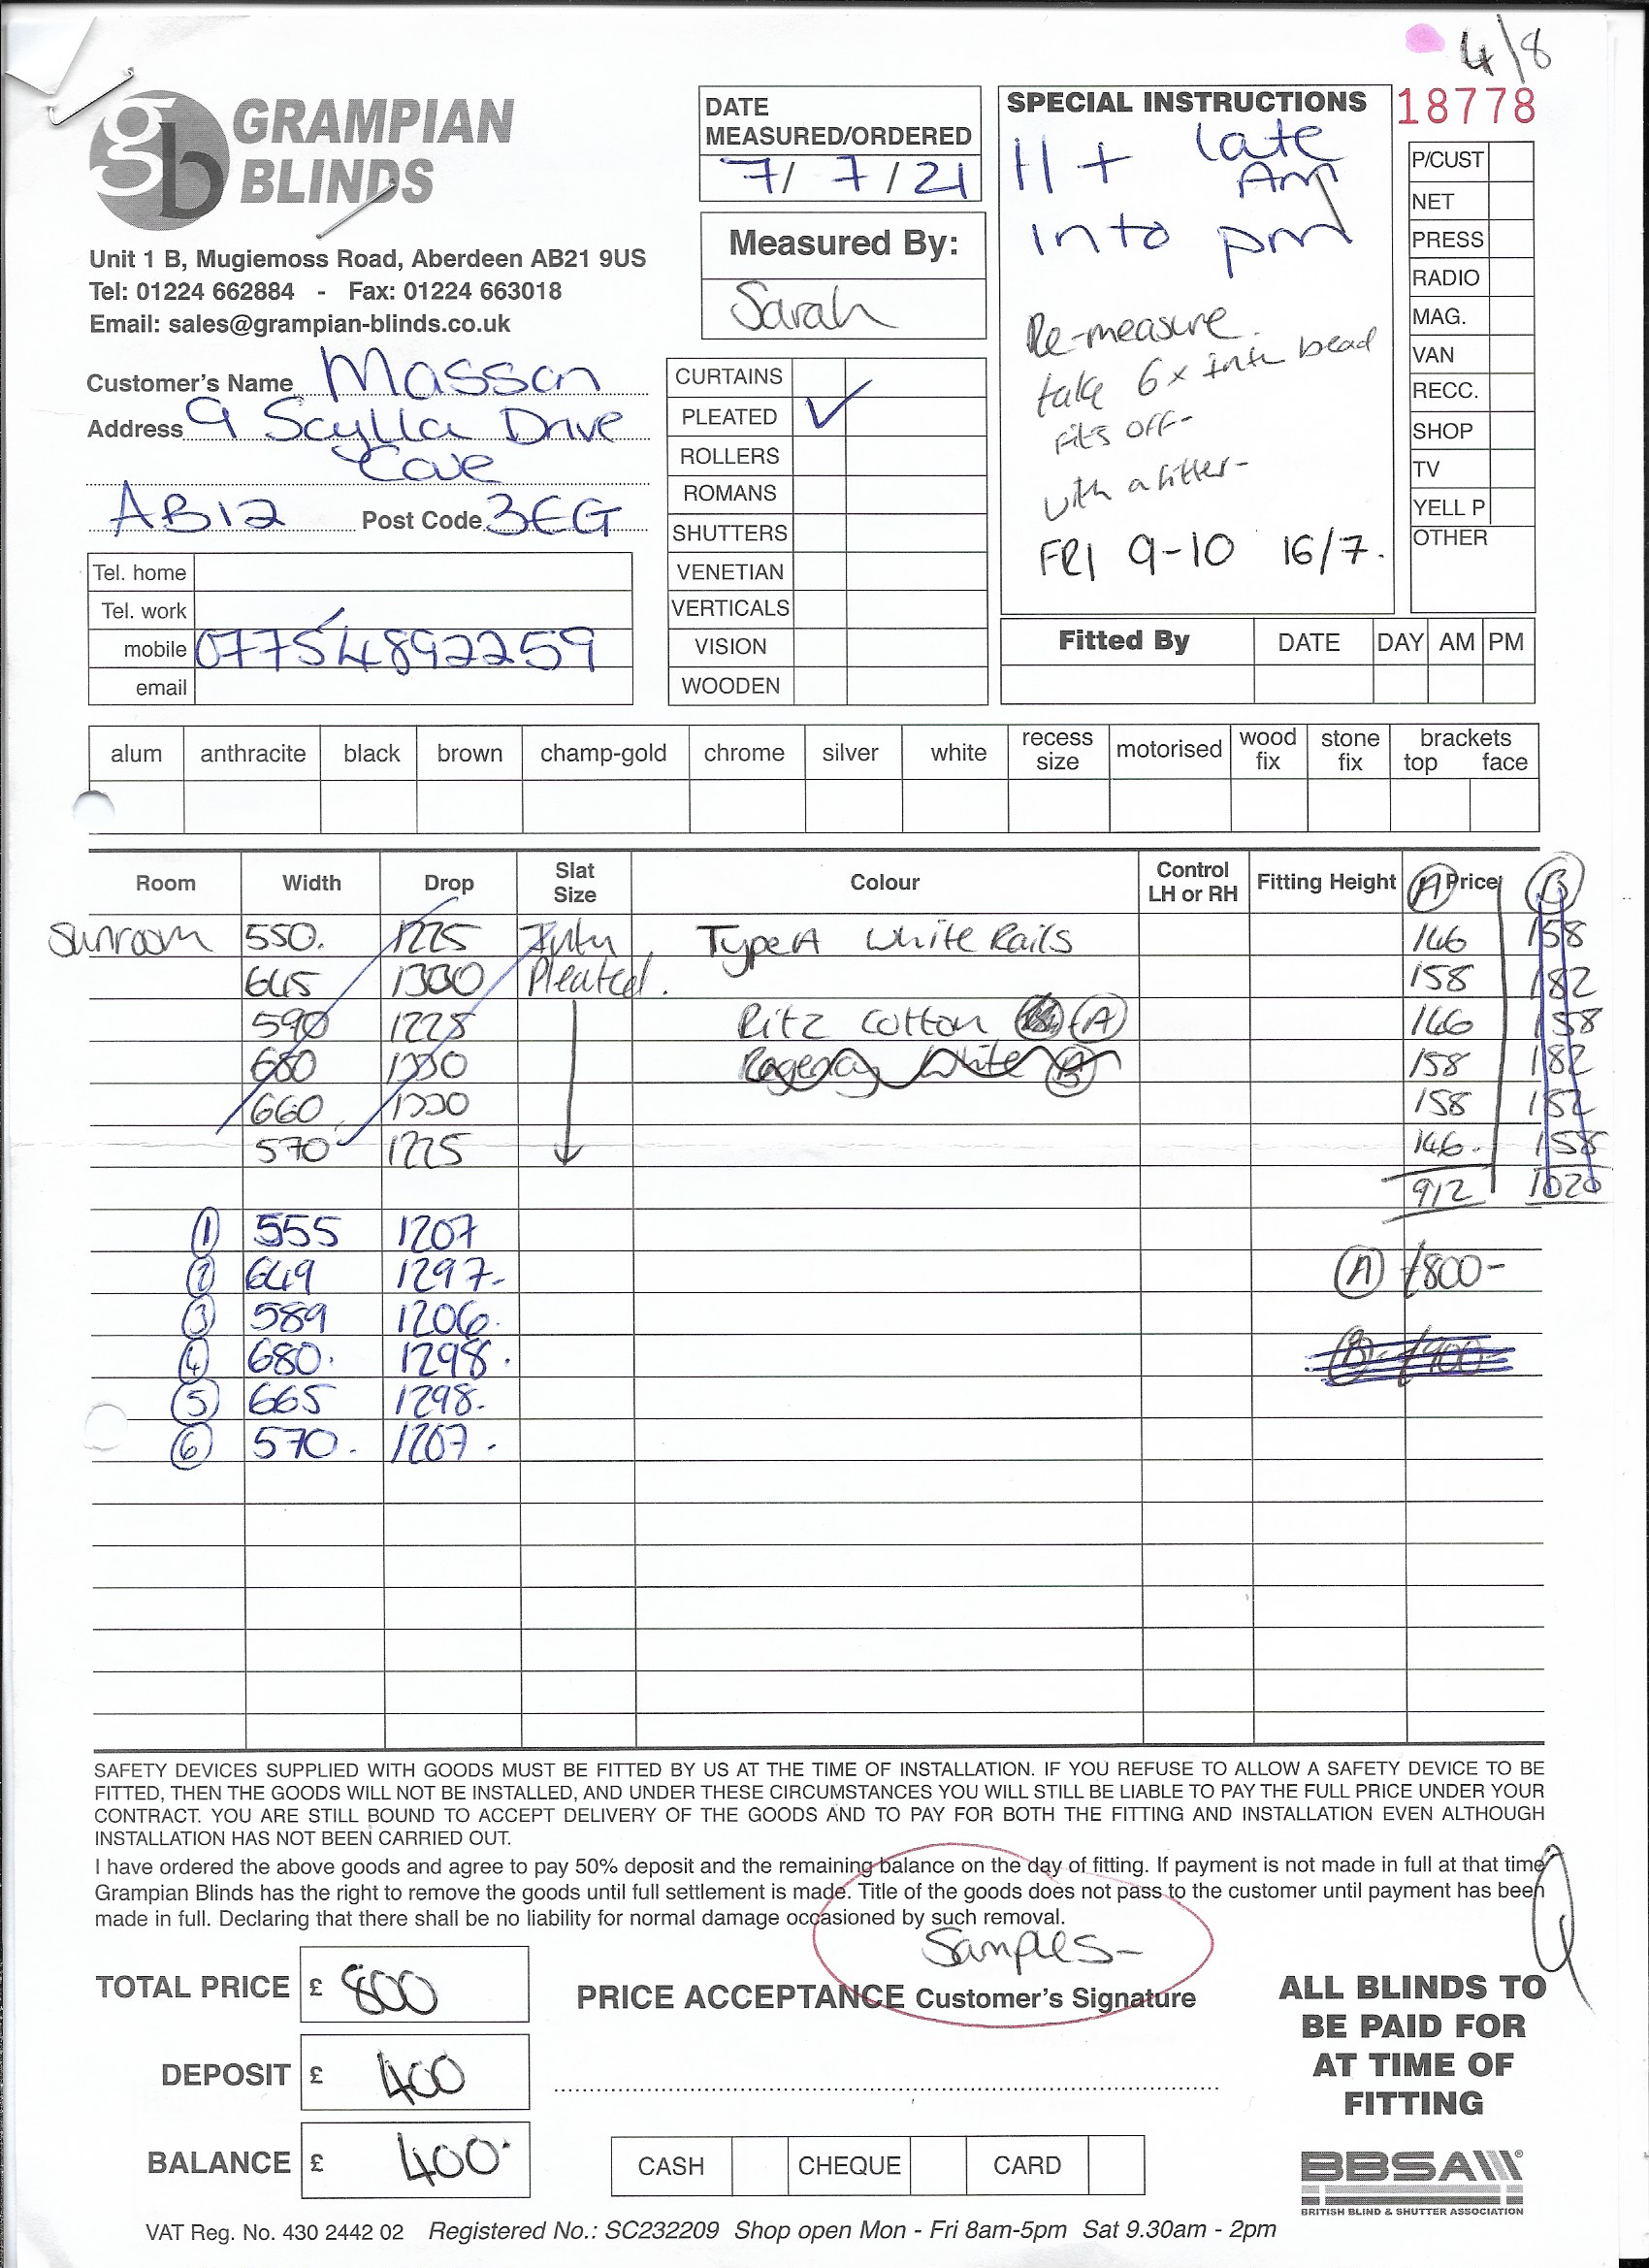 4/8
18778
gb GRAMPIAN
BLINDS
Unit 1 B, Mugiemoss Road, Aberdeen AB21 9US
Tel: 01224 662884 - Fax: 01224 663018
Email: sales@grampian-blinds.co.uk
Customer's Name Masson
Address 9 Scylla Drive
Cove
AB12 Post Code 3EG
Tel. home
Tel. work
mobile 07754892259
email
DATE
MEASURED/ORDERED
7/ 7/21
Measured By:
Sarah
CURTAINS
PLEATED ✓
ROLLERS
ROMANS
SHUTTERS
VENETIAN
VERTICALS
VISION
WOODEN
SPECIAL INSTRUCTIONS
11+ late
Am
into pm
Re-measure
take 6 x bead
fits off-
with a fitter-
FRI 9-10 16/7.
P/CUST
NET
PRESS
RADIO
MAG.
VAN
RECC.
SHOP
TV
YELL P
OTHER
Fitted By DATE DAY AM PM
alum anthracite black brown champ-gold chrome silver white recess size motorised wood fix stone fix brackets top face
Room Width Drop Slat Size Colour Control LH or RH Fitting Height (A) Price (B)
Sunroom 550. 1225 Type A White Rails 146 158
645 1300 Pleated. 158 182
590 1225 Ritz Cotton (A) 146 158
680 1330 White (B) 158 182
660 1330 158 182
570 1225 146. 158
912 1020
(1) 555 1207
(2) 649 1297- (A) £800-
(3) 589 1206.
(4) 680. 1298. (B) £900-
(5) 665 1298.
(6) 570. 1207.
SAFETY DEVICES SUPPLIED WITH GOODS MUST BE FITTED BY US AT THE TIME OF INSTALLATION. IF YOU REFUSE TO ALLOW A SAFETY DEVICE TO BE
FITTED, THEN THE GOODS WILL NOT BE INSTALLED, AND UNDER THESE CIRCUMSTANCES YOU WILL STILL BE LIABLE TO PAY THE FULL PRICE UNDER YOUR
CONTRACT. YOU ARE STILL BOUND TO ACCEPT DELIVERY OF THE GOODS AND TO PAY FOR BOTH THE FITTING AND INSTALLATION EVEN ALTHOUGH
INSTALLATION HAS NOT BEEN CARRIED OUT.
I have ordered the above goods and agree to pay 50% deposit and the remaining balance on the day of fitting. If payment is not made in full at that time
Grampian Blinds has the right to remove the goods until full settlement is made. Title of the goods does not pass to the customer until payment has been
made in full. Declaring that there shall be no liability for normal damage occasioned by such removal.
Samples-
TOTAL PRICE £ 800
PRICE ACCEPTANCE Customer's Signature
DEPOSIT £ 400
BALANCE £ 400.
CASH CHEQUE CARD
ALL BLINDS TO
BE PAID FOR
AT TIME OF
FITTING
BBSA®
BRITISH BLIND & SHUTTER ASSOCIATION
VAT Reg. No. 430 2442 02 Registered No.: SC232209 Shop open Mon - Fri 8am-5pm Sat 9.30am - 2pm